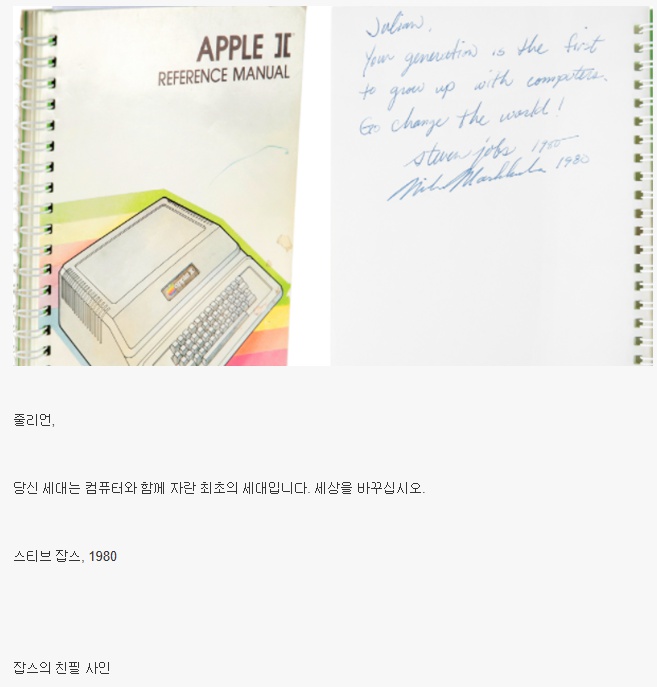 APPLE II
REFERENCE MANUAL
apple II
Julian,
Your generation is the first
to grow up with computers.
Go change the world!
steven jobs 1980
Mike Markkula 1980
줄리언,
당신 세대는 컴퓨터와 함께 자란 최초의 세대입니다. 세상을 바꾸십시오.
스티브 잡스, 1980
잡스의 친필 사인